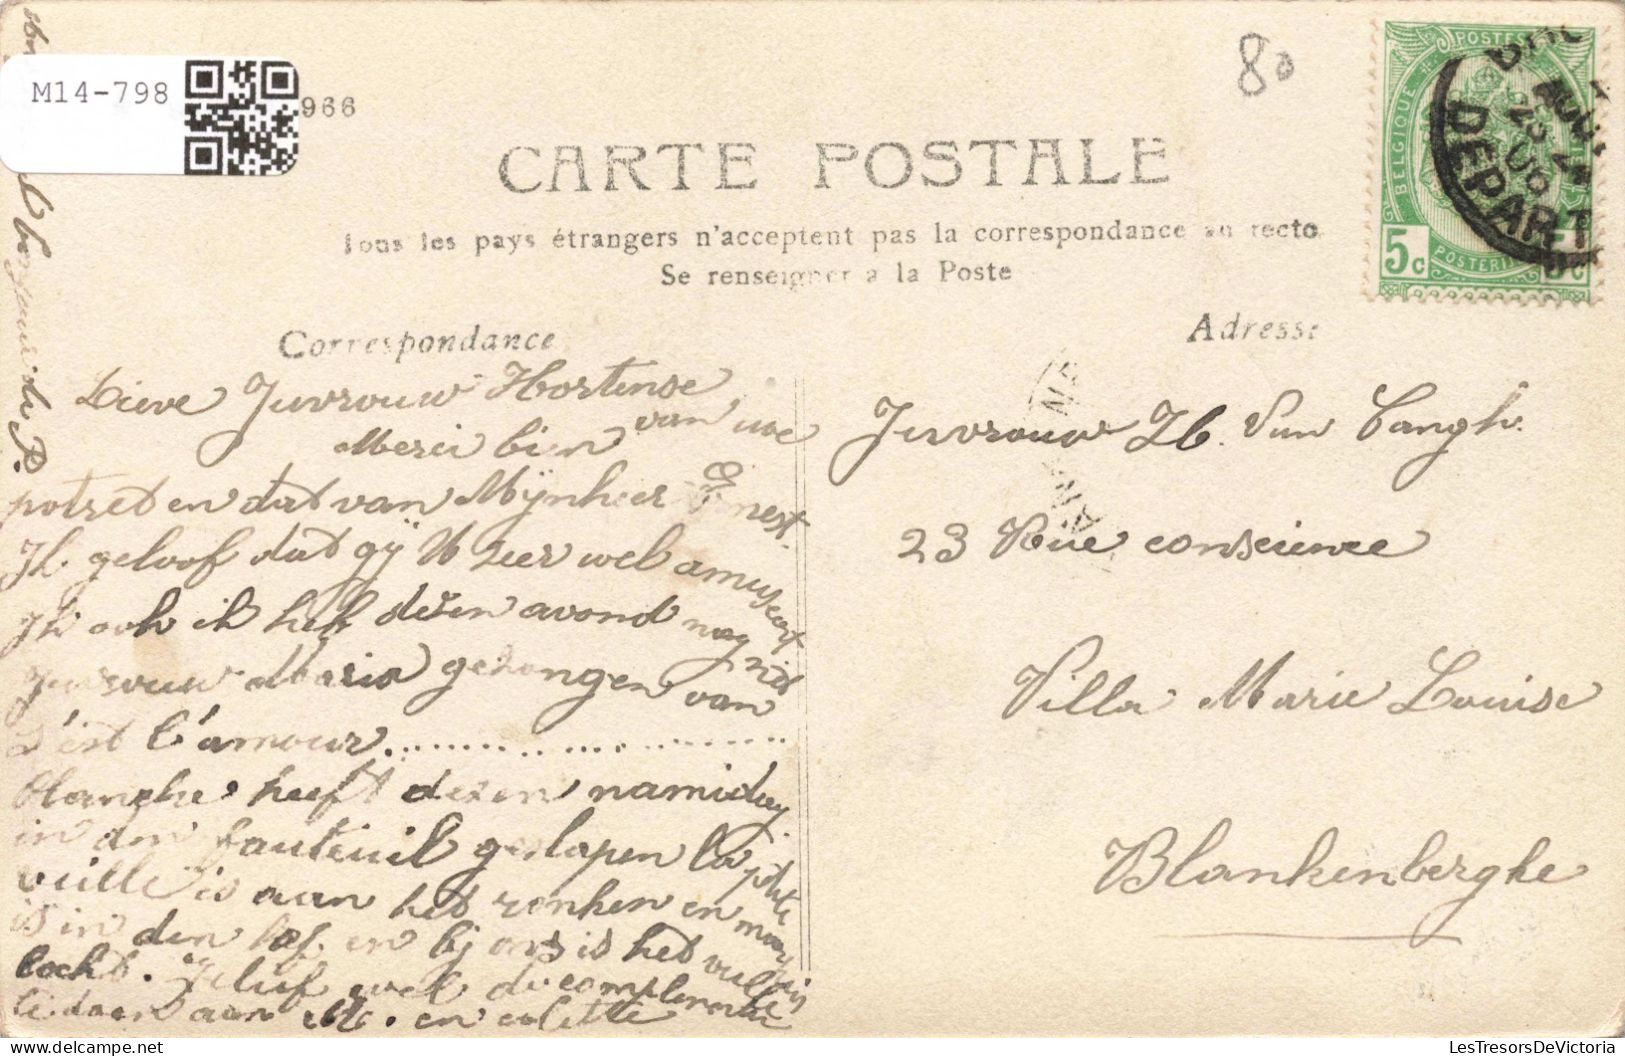 M14-798
966
80
CARTE POSTALE
Tous les pays étrangers n'acceptent pas la correspondance au recto
Se renseigner a la Poste
BELGIQUE
POSTES
POSTERIJEN
5c
5c
AOU
23
06
DEPART
Correspondance
Adresse
Lieve Juvrouw Hortense
Merci bien van uwe
potret en dat van Mÿnheer Ernest.
Ik geloof dat gÿ U zeer wel amuseert
Ik ook ik heb dezen avond nog
Juvrouw Maria gezongen van
C'est l'amour..........................
Blanche heeft dezen namidag
in den fauteuil geslapen La petite
veille is aan het ronken en
is in den hof. en bÿ ons is het
locht. Gelief wel de complimente
te doen aan M. en colette
bonjour de P.
Juvrouw H. Van Cangh.
23 Rue conscience
Villa Marie Louise
Blankenberghe
LesTresorsDeVictoria